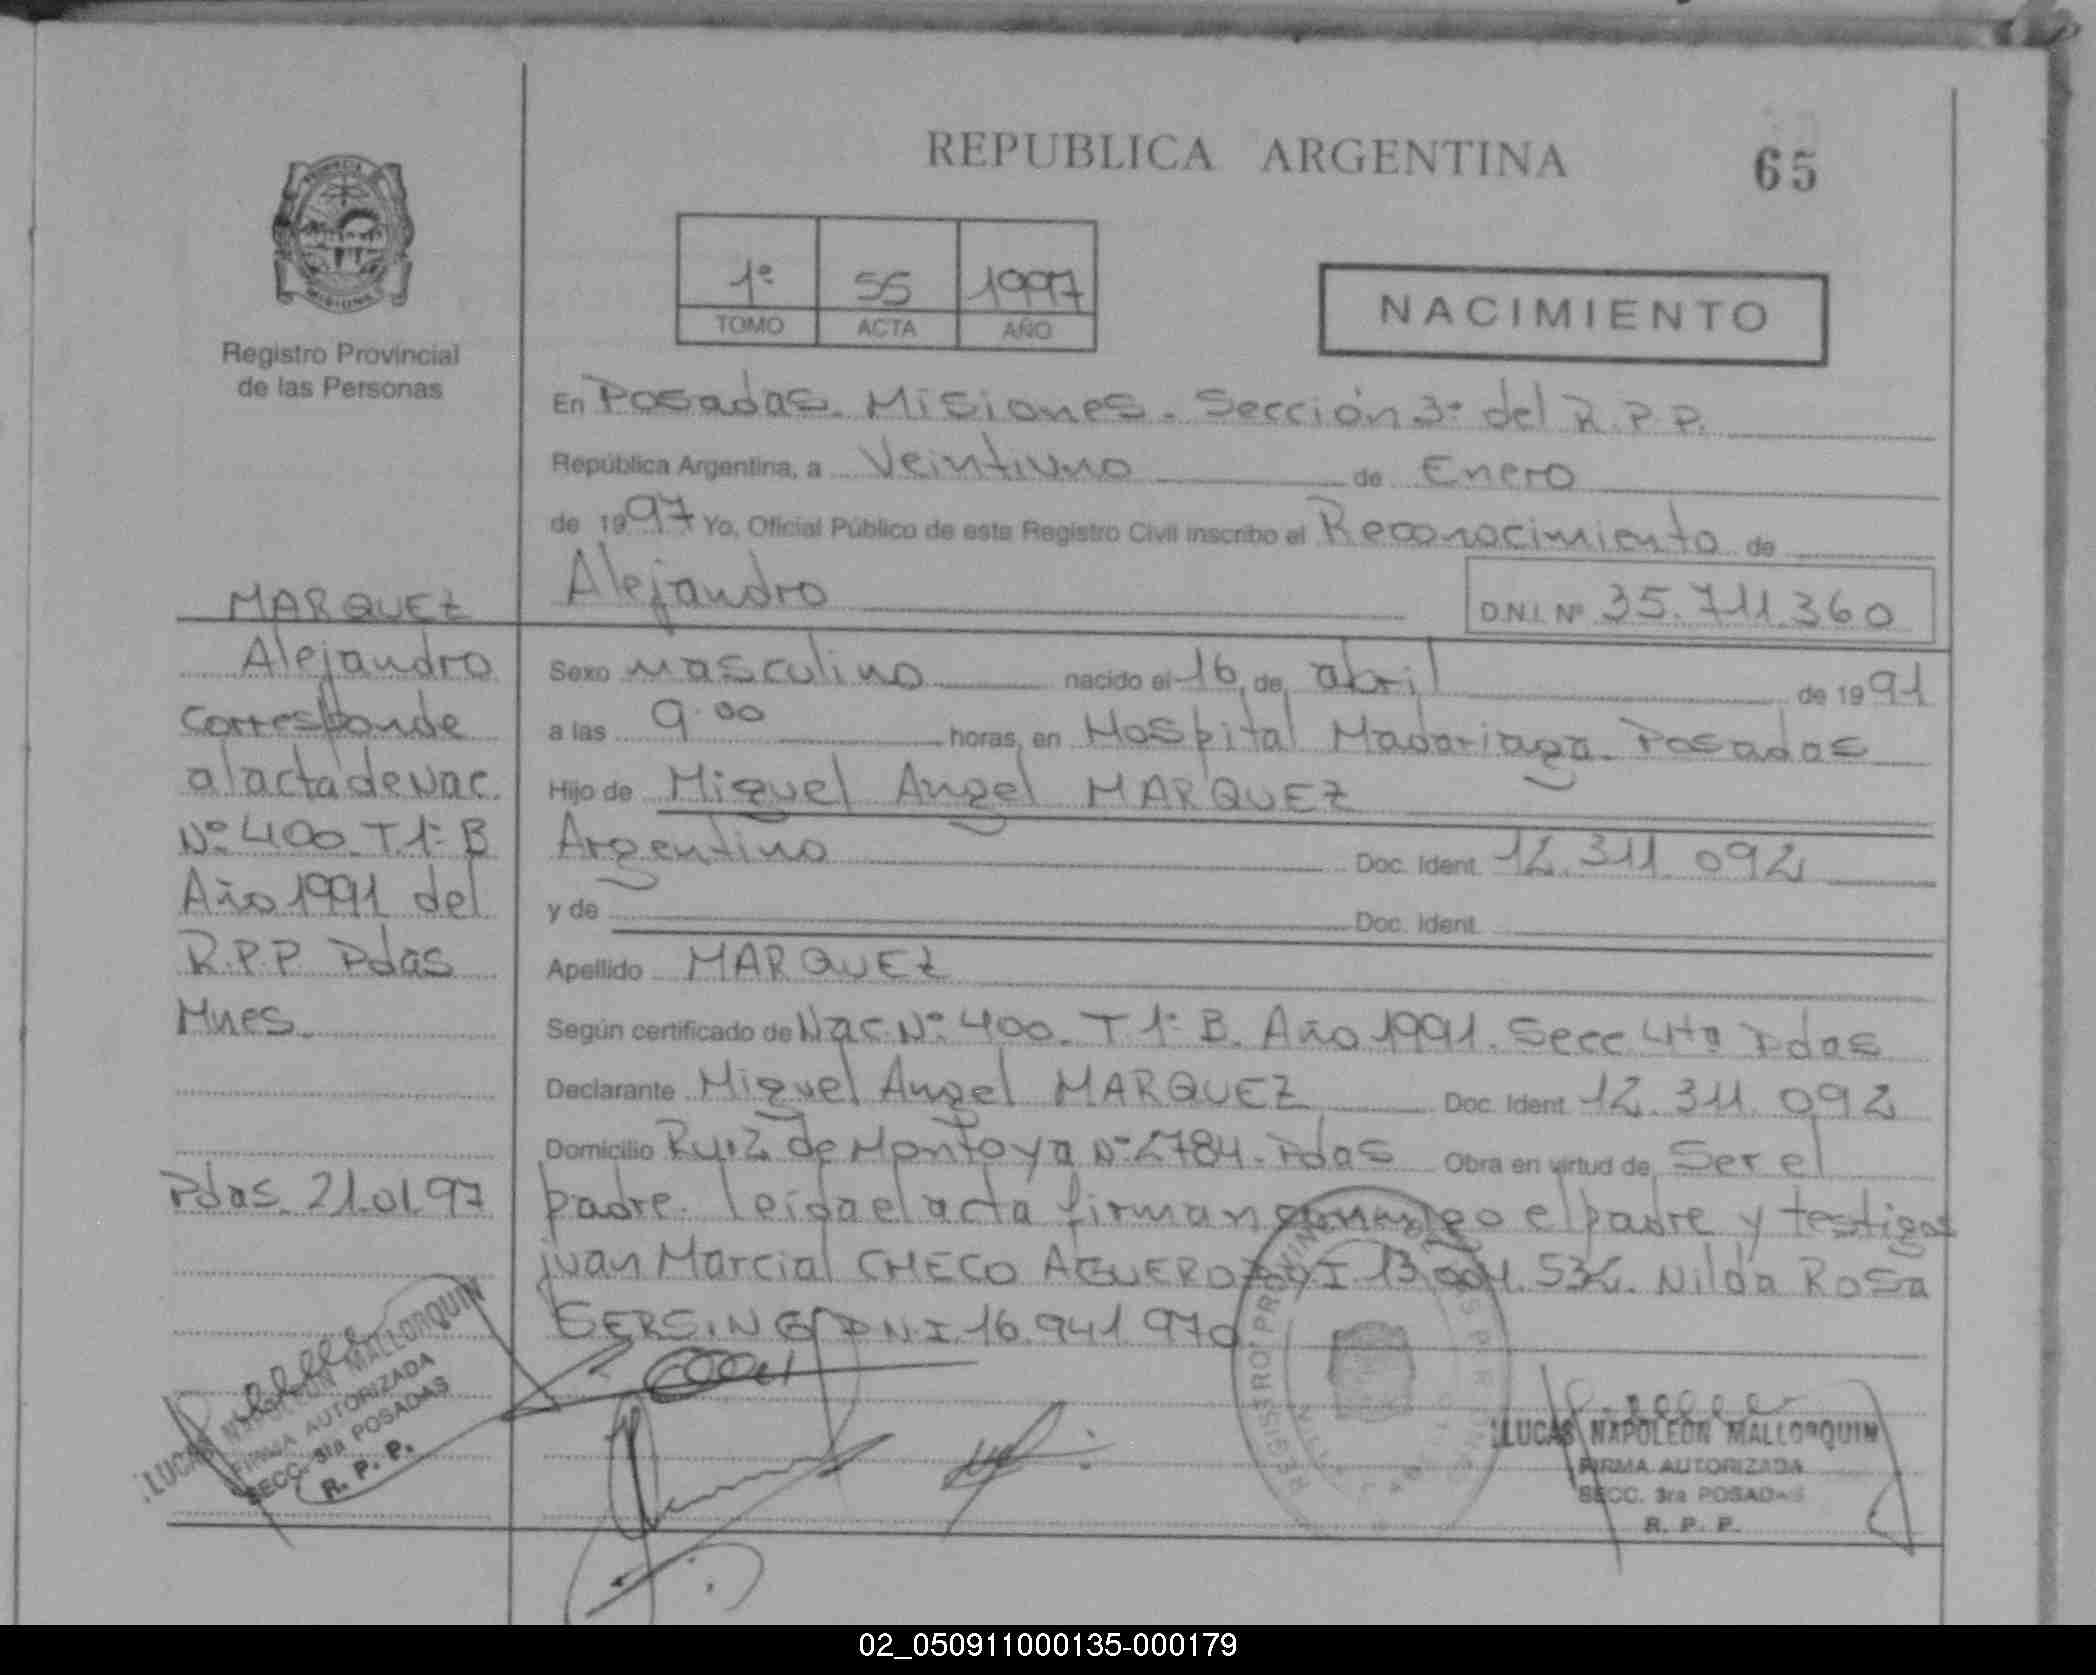 REPUBLICA ARGENTINA
65
1º 55 1997
TOMO ACTA AÑO
NACIMIENTO
Registro Provincial
de las Personas
En Posadas. Misiones. Sección 3º del R.P.P.
República Argentina, a Veintiuno de Enero
de 1997 Yo, Oficial Público de este Registro Civil inscribo el Reconocimiento de
Alejandro D.N.I. Nº 35.711.360
Sexo masculino nacido el 16 de abril de 1991
a las 9.00 horas, en Hospital Madariaga. Posadas
Hijo de Miguel Angel MARQUEZ
Argentino Doc. Ident. 12.311.092
y de Doc. Ident.
Apellido MARQUEZ
Según certificado de Nac. Nº 400. T 1º B. Año 1991. Secc 4ta Pdas
Declarante Miguel Angel MARQUEZ Doc. Ident. 12.311.092
Domicilio Ruiz de Montoya Nº 2784. Pdas Obra en virtud de Ser el
padre. leida el acta firman conmigo el padre y testigos
juan Marcial CHECO AGUERO DNI 13.004.532. Nilda Rosa
GERSING DNI 16.941.970
MARQUEZ
Alejandro
Corresponde
al acta de Nac.
Nº 400. T 1º B
Año 1991 del
R.P.P. Pdas
Mnes.
Pdas. 21.01.97
LUCAS NAPOLEON MALLORQUIN
FIRMA AUTORIZADA
SECC. 3ra POSADAS
R. P. P.
LUCAS NAPOLEON MALLORQUIN
FIRMA AUTORIZADA
SECC. 3ra POSADAS
R. P. P.
02_050911000135-000179